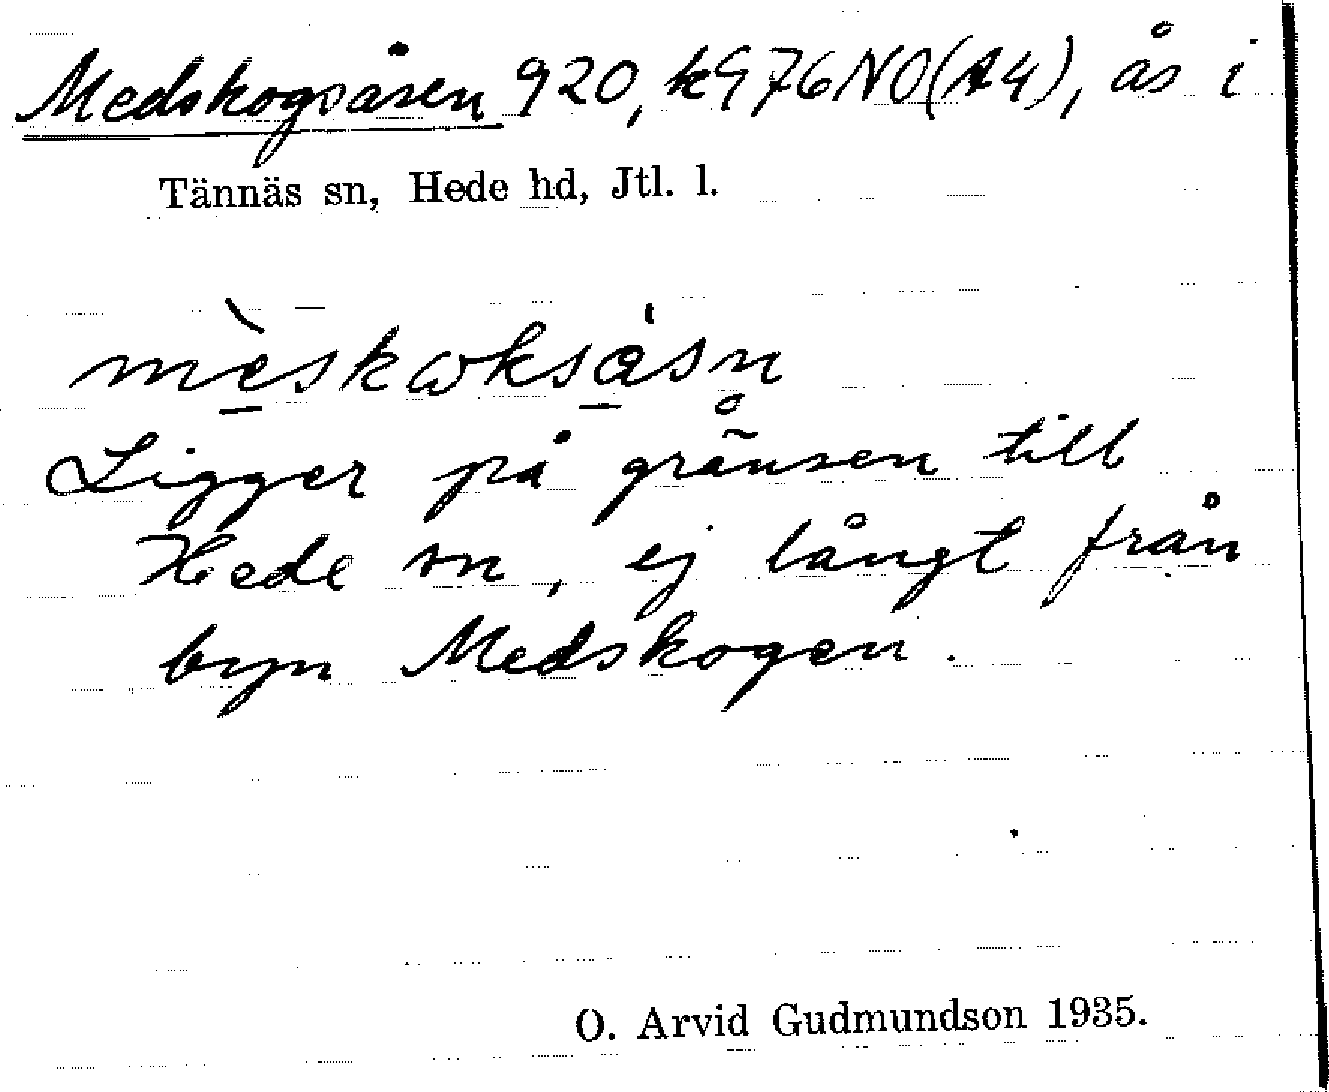 Medskogsåsen 920, k976NO(A4), ås i
Tännäs sn, Hede hd, Jtl. l.
mèskωksåsn
Ligger på gränsen till
Hede sn, ej långt från
byn Medskogen.
O. Arvid Gudmundson 1935.